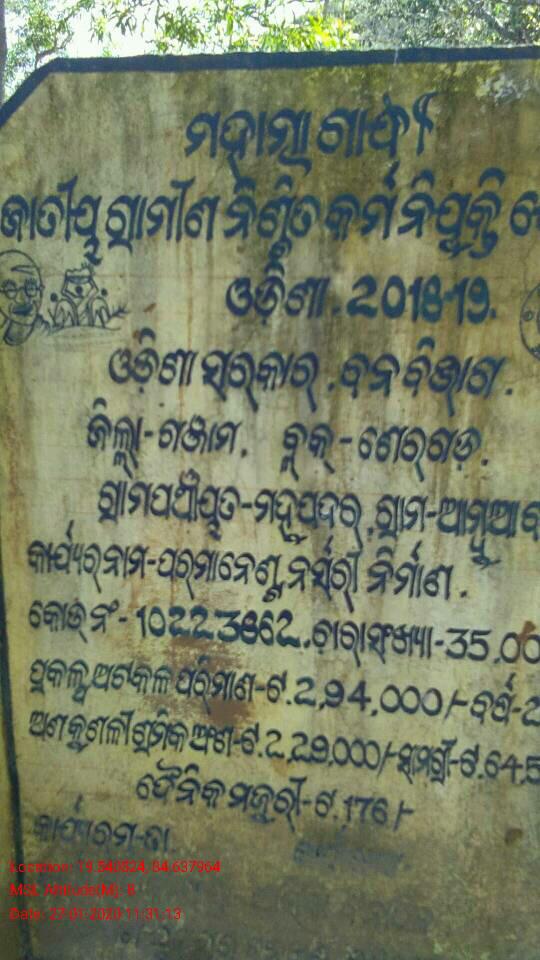 ମହାତ୍ମା ଗାନ୍ଧୀ
ଜାତୀୟ ଗ୍ରାମୀଣ ନିଶ୍ଚିତ କର୍ମ ନିଯୁକ୍ତି
ଓଡ଼ିଶା . 2018-19.
ଓଡ଼ିଶା ସରକାର୍ . ବନ ବିଭାଗ .
ଜିଲ୍ଲା - ଗଞ୍ଜାମ . ବ୍ଲକ୍ - ଶେର୍‌ଗଡ଼ .
ଗ୍ରାମପଞ୍ଚାୟତ - ମହୁପଦର୍ . ଗ୍ରାମ - ଆମ୍ବୁଆ
କାର୍ଯ୍ୟର୍ ନାମ - ପର୍‌ମାନେଣ୍ଟ ନର୍ସରୀ ନିର୍ମାଣ .
କୋଡ୍ ନଂ - ଚାରା ସଂଖ୍ୟା - 35,00
ପ୍ରକଳ୍ପ ଅଟକଳ ପରିମାଣ - ଟ.2,94,000/- ବର୍ଷ - 2
ଅଣକୁଶଳୀ ଶ୍ରମିକ ଅଂଶ - ଟ.2,29,000/- ସାମଗ୍ରୀ - ଟ.64,5
ଦୈନିକ ମଜୁରୀ - ଟ.176/-
କାର୍ଯ୍ୟାରମ୍ଭ - ତା.
Location: 19.540824, 84.637964
MSL Altitude(M): 8
Date: 27-01-2020 11:31:13